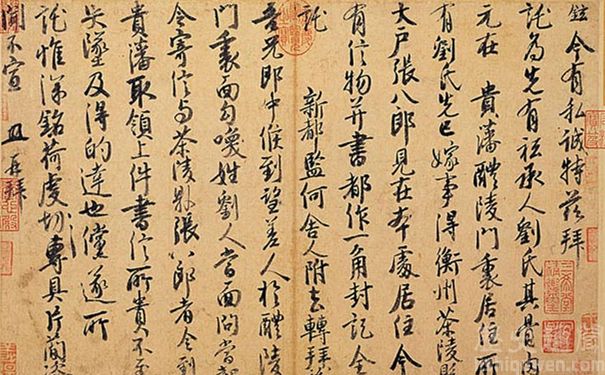 鉉今有私誠特兹拜
託為先有祗承人劉氏其骨肉
元在 貴藩醴陵門裏居住所
有劉氏先已嫁事得衡州茶陵縣
大户張八郎見在本處居住今
有信物并書都作一角封記全
託 新都監何舍人附去轉拜託
吾兄郎中候到望差人於醴陵
門裏面勾喚姓劉人當面問當却
令寄信与茶陵縣張八郎者令到
貴藩取領上件書信所貴不至
失墜及得的達也儻遂所
託惟深銘荷虔切專具片簡咨
聞不宣 鉉再拜